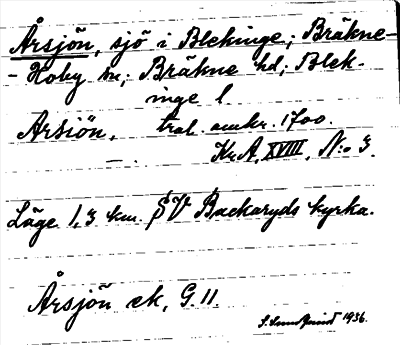 Årsjön, sjö i Blekinge; Bräkne-
-Hoby sn; Bräkne hd; Blek-
inge l.
Arsiön, trol. omkr. 1700.
Kr.A, XVIII, N:o 3.
Läge 1,3 km. SV Backaryds kyrka.
Årsjön ek, G. 11.
S. Lundqvist 1936.